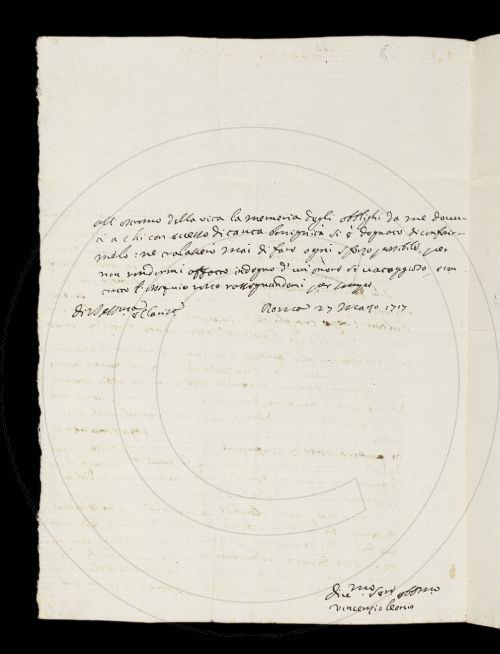 all estremo della vita la memoria degli oblighi da me dovu-
ti a chi con eccesso di tanta benignità si è degnato di confer-
melo: ne tralasserò mai di fare ogni sforzo possibile, per
non rendermi affatto indegno d' un' onore si vantaggioso, e con
tutto l' ossequio resto rassegnandomi per sempre
Di Vostra
Roma 27 Marzo 1717
Vincenzio Leonio